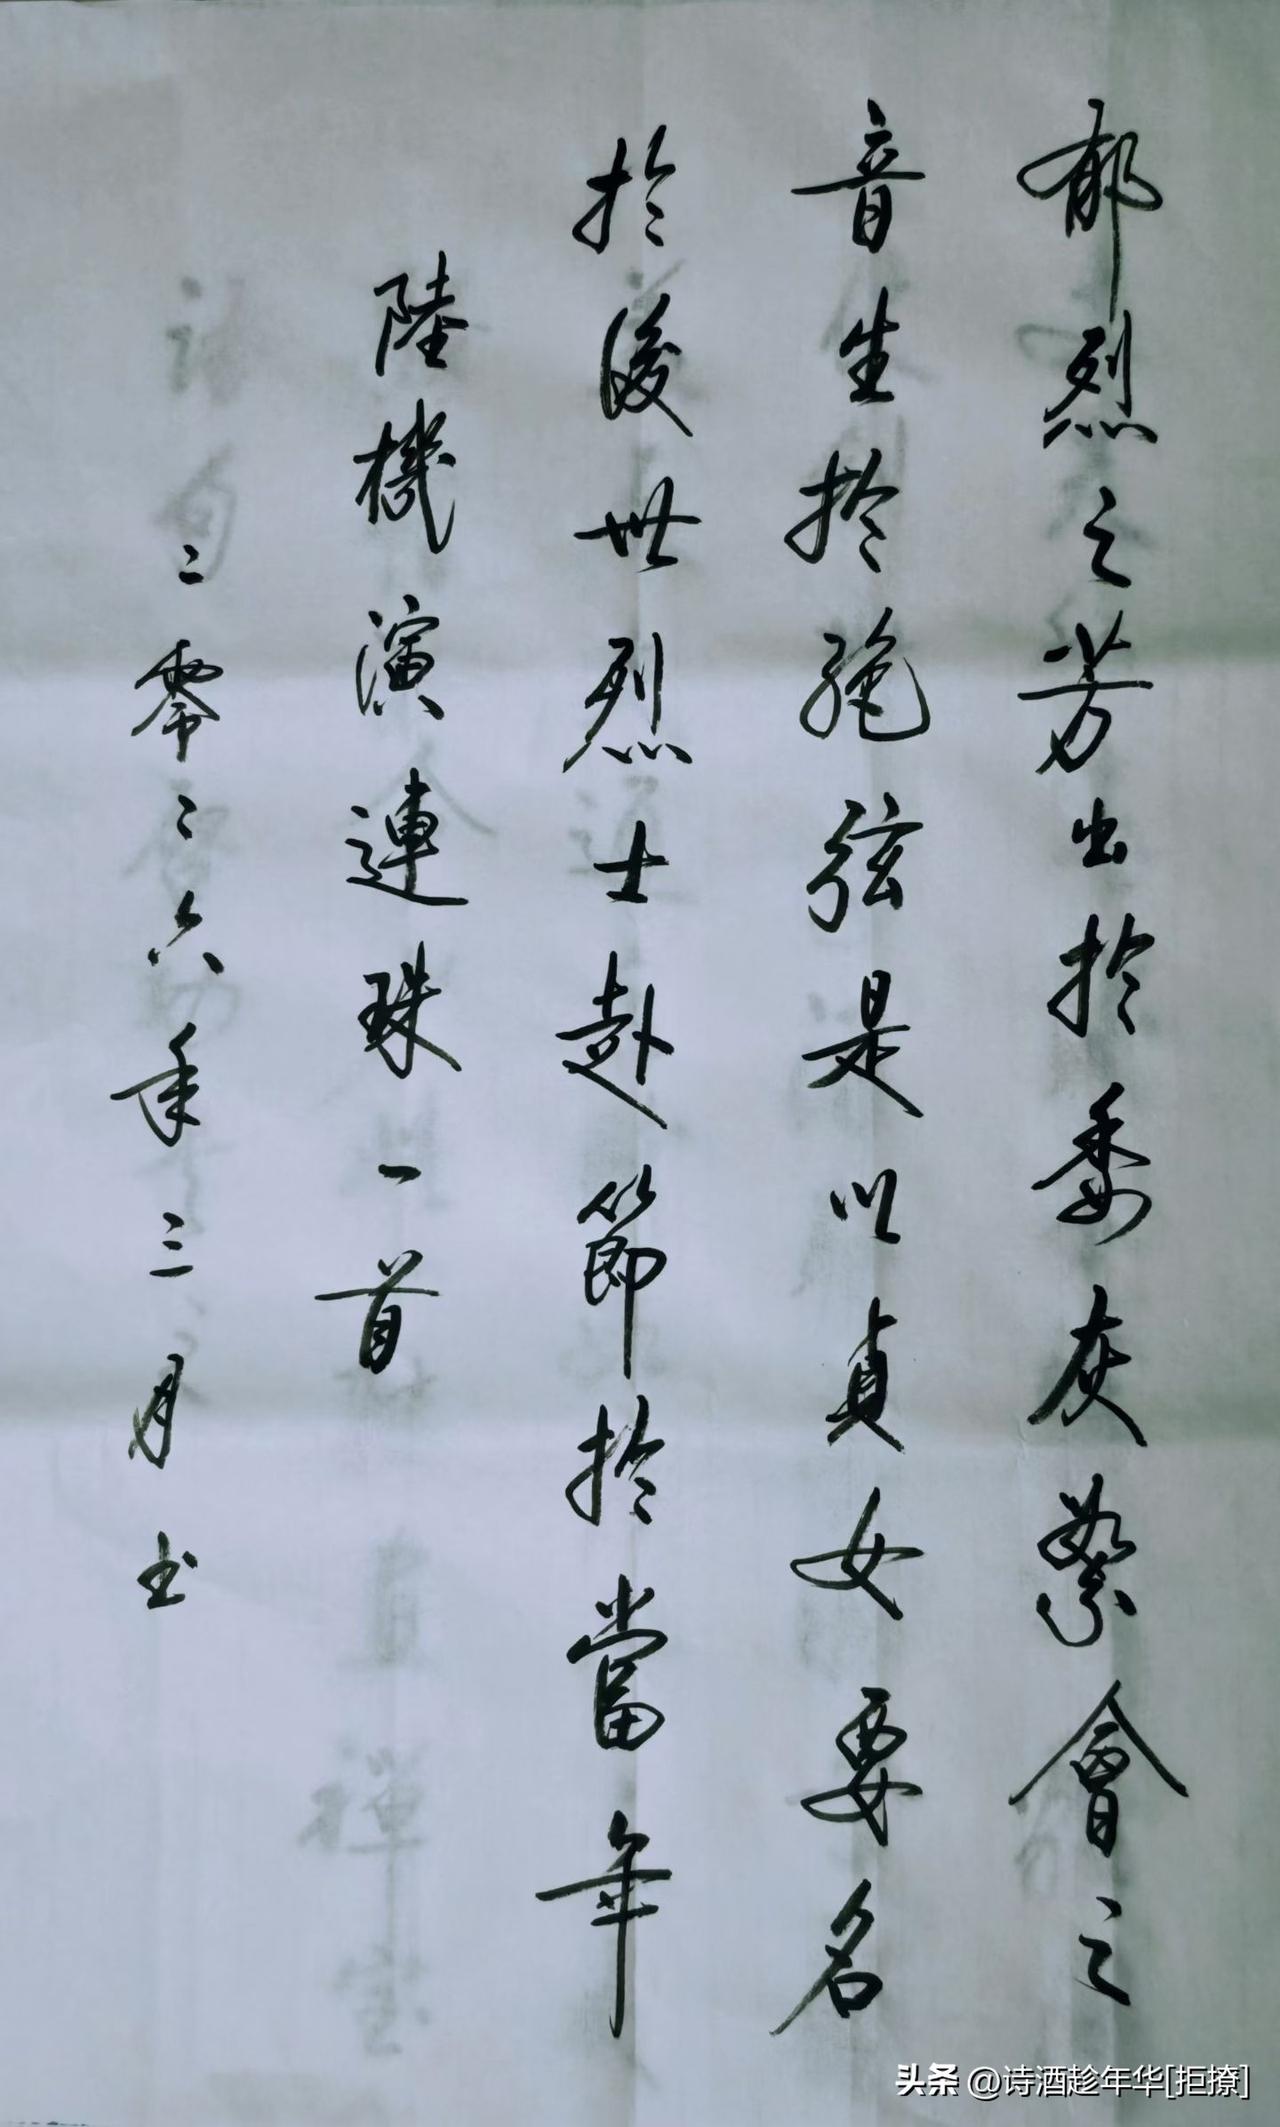 郁烈之芳出於委灰繁會之
音生於絕弦是以貞女要名
於後世烈士赴節於當年
陸機演連珠一首
二零二六年三月书
头条 @诗酒趁年华[拒撩]